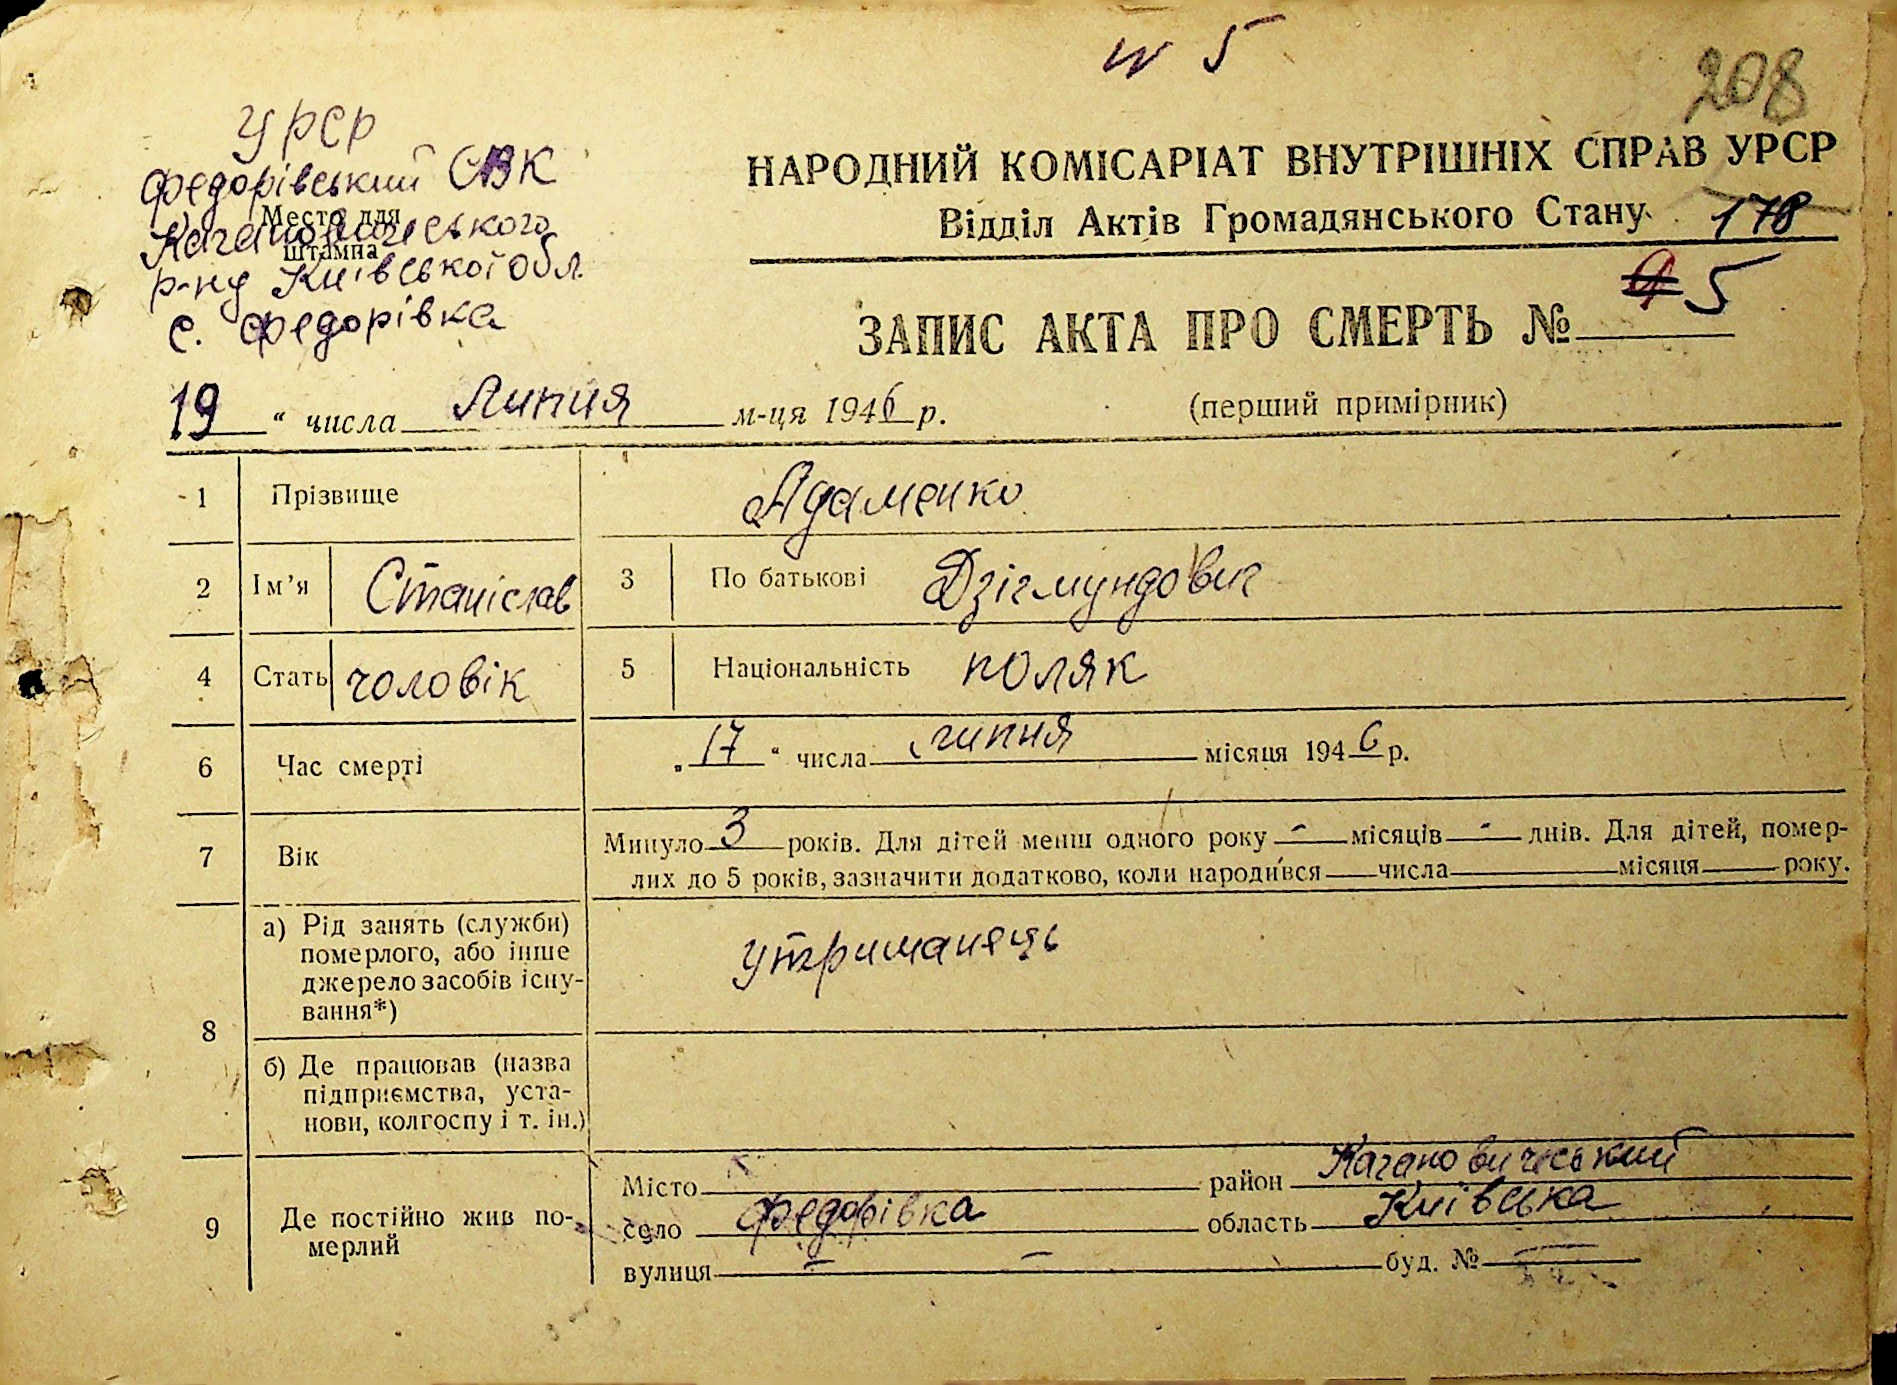 № 5
208
УРСР
Федорівський СВК
Место для
Кагановичеського
штампа
р-ну Київської обл
с. Федорівка
НАРОДНИЙ КОМІСАРІАТ ВНУТРІШНІХ СПРАВ УРСР
Відділ Актів Громадянського Стану 178
ЗАПИС АКТА ПРО СМЕРТЬ № 5
19 “ числа Липня м-ця 1946 р. (перший примірник)
1 Прізвище Адаменко
2 Ім’я Станіслав 3 По батькові Дзігмундович
4 Стать чоловік 5 Національність поляк
6 Час смерті „17“ числа липня місяця 1946 р.
7 Вік Минуло 3 років. Для дітей менш одного року - місяців - днів. Для дітей, помер-
лих до 5 років, зазначити додатково, коли народився числа місяця року.
8 а) Рід занять (служби)
померлого, або інше
джерело засобів існу-
вання*)
утриманець
б) Де працював (назва
підприємства, уста-
нови, колгоспу і т. ін.)
9 Де постійно жив по-
мерлий
Місто район Кагановичеський
село Федорівка область Київська
вулиця — — буд. № —